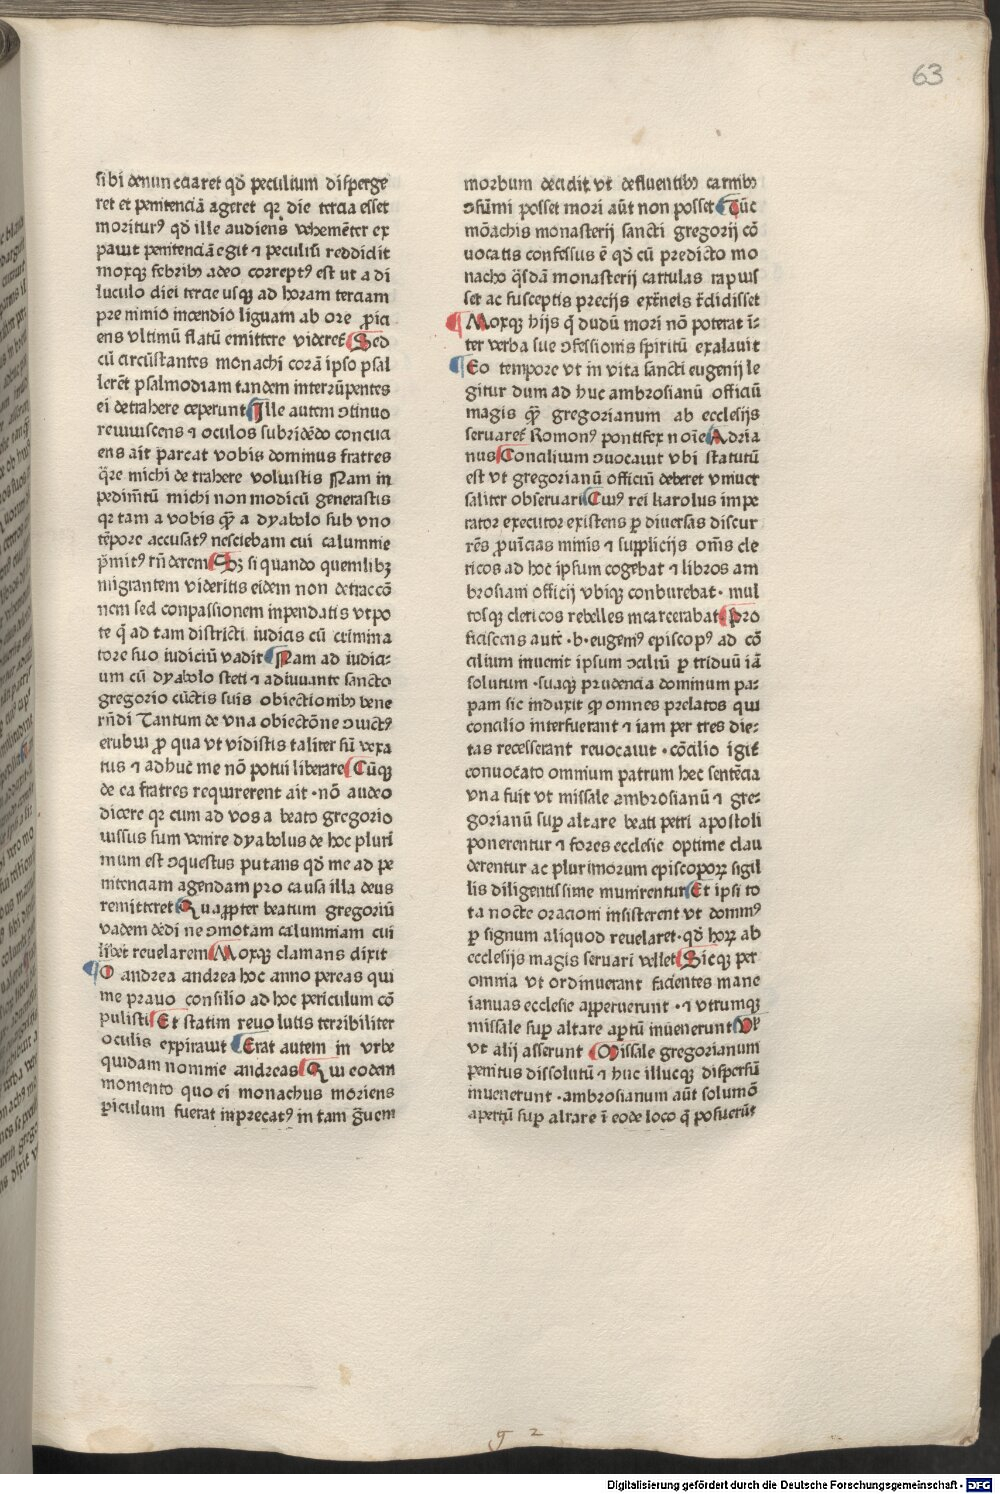 63
sibi denunctiaret qđ peculium disperge
ret et penitenciā ageret qꝛ die tercia esset
moriturꝰ qđ ille audiens vehemēter ex
pauit penitenciā egit ⁊ peculiū reddidit
moxqꝫ febribꝫ adeo correptꝰ est ut a di
luculo diei tercie usqꝫ ad horam terciam
pre nimio incendio liguam ab ore ꝓici
ens vltimū flatū emittere videret̄ Sed
cū circūstantes monachi corā ipso psal
lerēt psalmodiam tandem interrūpentes
ei detrahere ceperunt Ille autem ↄtinuo
reuiuiscens ⁊ oculos subridēdo concuci
ens ait parcat vobis dominus fratres
q̄re michi detrahere voluistis Nam in
pedimētū michi non modicū generastis
qꝛ tam a vobis qꝫ a dyabolo sub vno
tēpore accusatꝰ nesciebam cui calumnie
p̄mitꝰ rn̄derem Sꝫ si quando quemlibꝫ
migrantem videritis eidem non detraccō
nem sed conpassionem inpendatis vtpo
te q̄ ad tam districti iudicis cū crimina
tore suo iudiciū vadit Nam ad iudici⸗
um cū dyabolo steti ⁊ adiuuante sancto
gregorio cūctis suis obiectionibꝫ bene
rn̄di Tantum de vna obiectōne ↄuictꝰ
erubui ꝓ qua vt vidistis taliter sū vexa
tus ⁊ adhuc me nō potui liberare Cūqꝫ
de ea fratres requirerent ait · nō audeo
dicere qꝛ cum ad vos a beato gregorio
iussus sum venire dyabolus de hoc pluri
mum est ↄquestus putans qđ me ad pe
nitenciam agendam pro causa illa deus
remitteret Quaꝓpter beatum gregoriū
vadem dedi ne ↄmotam calumniam cui
libet reuelarem Moxqꝫ clamans dixit
O andrea andrea hoc anno pereas qui
me prauo consilio ad hoc periculum cō
pulisti Et statim reuolutis terribiliter
oculis expirauit Erat autem in vrbe
quidam nomine andreas Qui eodem
momento quo ei monachus moriens
ꝑiculum fuerat inprecatꝰ in tam g̃uem
morbum decidit vt defluentibꝫ carnibꝫ
ↄsūmi posset mori aūt non posset Tūc
mōachis monasterij sancti gregorij cō
uocatis confessus ē qđ cū predicto mo
nacho q̄sdā monasterij cartulas rapuis
set ac susceptis precijs extr̄neis tr̄didisset
Moxqꝫ hijs q̄ dudū mori nō poterat ī⸗
ter verba sue ↄfessionis spiritū exalauit
Eo tempore vt in vita sancti eugenij le
gitur dum ad huc ambrosianū officiū
magis qꝫ gregorianum ab ecclesijs
seruaret̄ Romonꝰ pontifex noīe Adria
nus Concilium ↄuocauit vbi statutū
est vt gregorianū officiū deberet vniuer
saliter obseruari Cuiꝰ rei karolus impe
rator executor existens ꝑ diuersas discur
rēs ꝓuīcias minis ⁊ supplicijs om̄s cle
ricos ad hoc ipsum cogebat ⁊ libros am
brosiani officij vbiqꝫ conburebat · mul
tosqꝫ clericos rebelles incarcerabat Pro
ficiscens autē · b · eugeniꝰ episcopꝰ ad cō
cilium inuenit ipsum ↄciliū ꝑ triduū iā
solutum · suaqꝫ prudencia dominum pa⸗
pam sic induxit ꝙ omnes prelatos qui
concilio interfuerant ⁊ iam per tres die⸗
tas recesserant reuocauit · cōcilio igit̄
conuocato omnium patrum hec sentēcia
vna fuit vt missale ambrosianū ⁊ gre⸗
gorianū suꝑ altare beati petri apostoli
ponerentur ⁊ fores ecclesie optime clau
derentur ac plurimorum episcopoꝝ sigil
lis diligentissime munirentur Et ipsi to
ta nocte oracioni insisterent vt dominꝰ
ꝑ signum aliquod reuelaret · qđ hoꝝ ab
ecclesijs magis seruari vellet Sicqꝫ per
omnia vt ordinuerant facientes mane
ianuas ecclesie apperuerunt · ⁊ vtrumqꝫ
missale suꝑ altare aꝑtū inuenerunt Uꝉ
vt alij asserunt Missale gregorianum
penitus dissolutū ⁊ huc illucqꝫ dispersū
inuenerunt · ambrosianum aūt solumō
apertū suꝑ altare ī eodē loco q̄ posuerūt
g 2
Digitalisierung gefördert durch die Deutsche Forschungsgemeinschaft - DFG